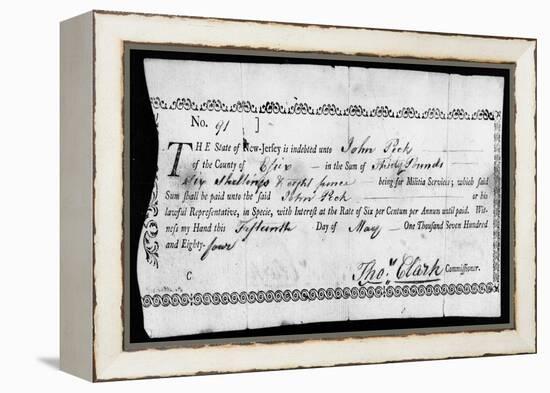 No. 91 ]
THE State of New-Jersey is indebted unto John Peck
of the County of Essex — in the Sum of Thirty Pounds
Six Shillings & eight pence — being for Militia Services; which said
Sum shall be paid unto the said John Peck — or his
lawful Representative, in Specie, with Interest at the Rate of Six per Centum per Annum until paid. Wit-
ness my Hand this Fifteenth Day of May — One Thousand Seven Hundred
and Eighty-four
C Thos. Clark Commissioner.